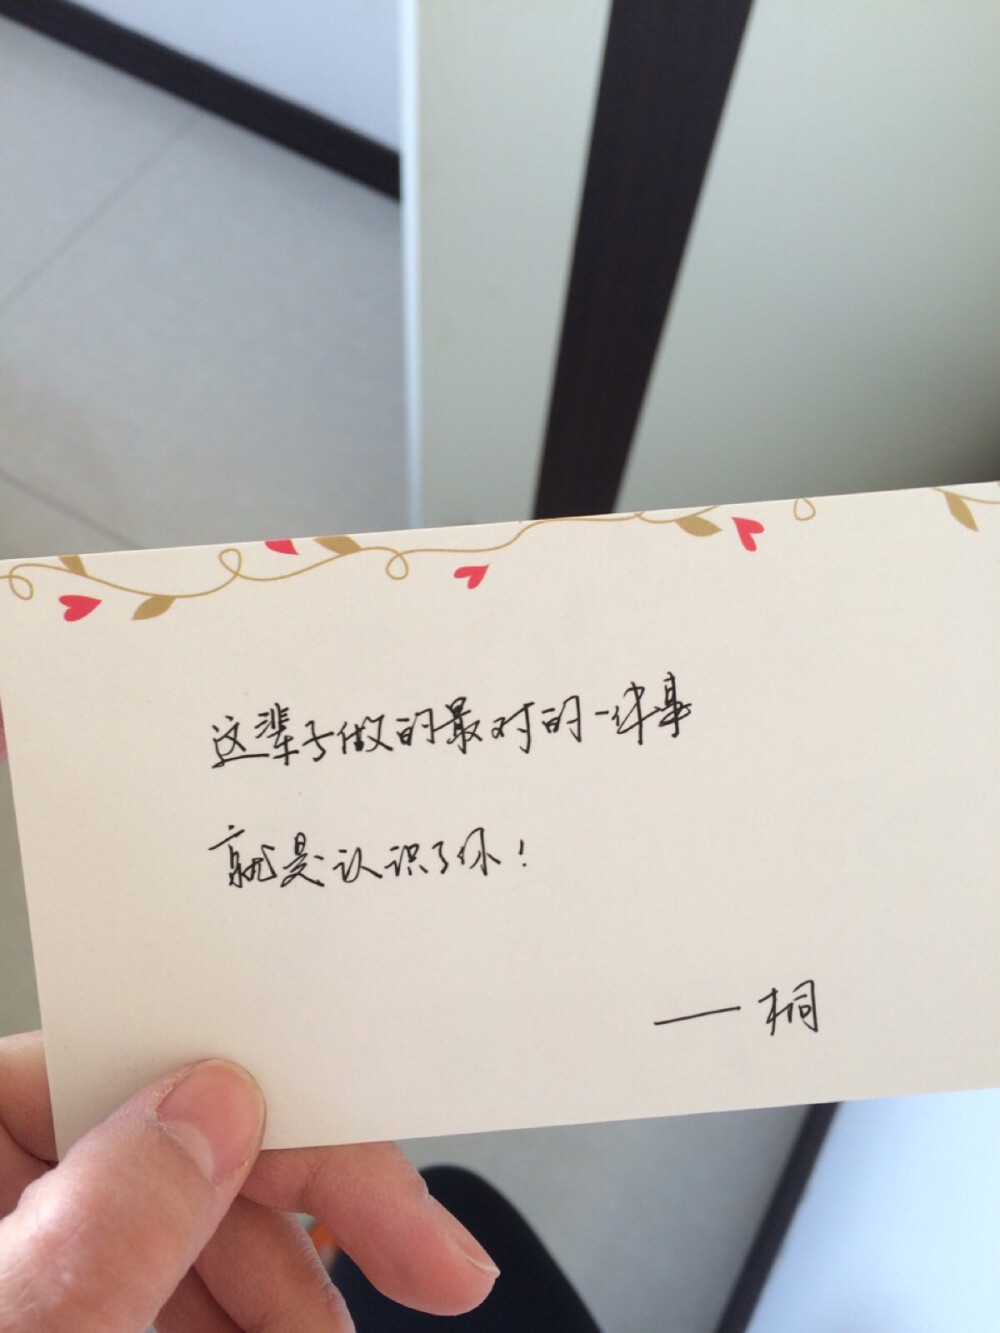 这辈子做的最对的一件事
就是认识了你！
——桐